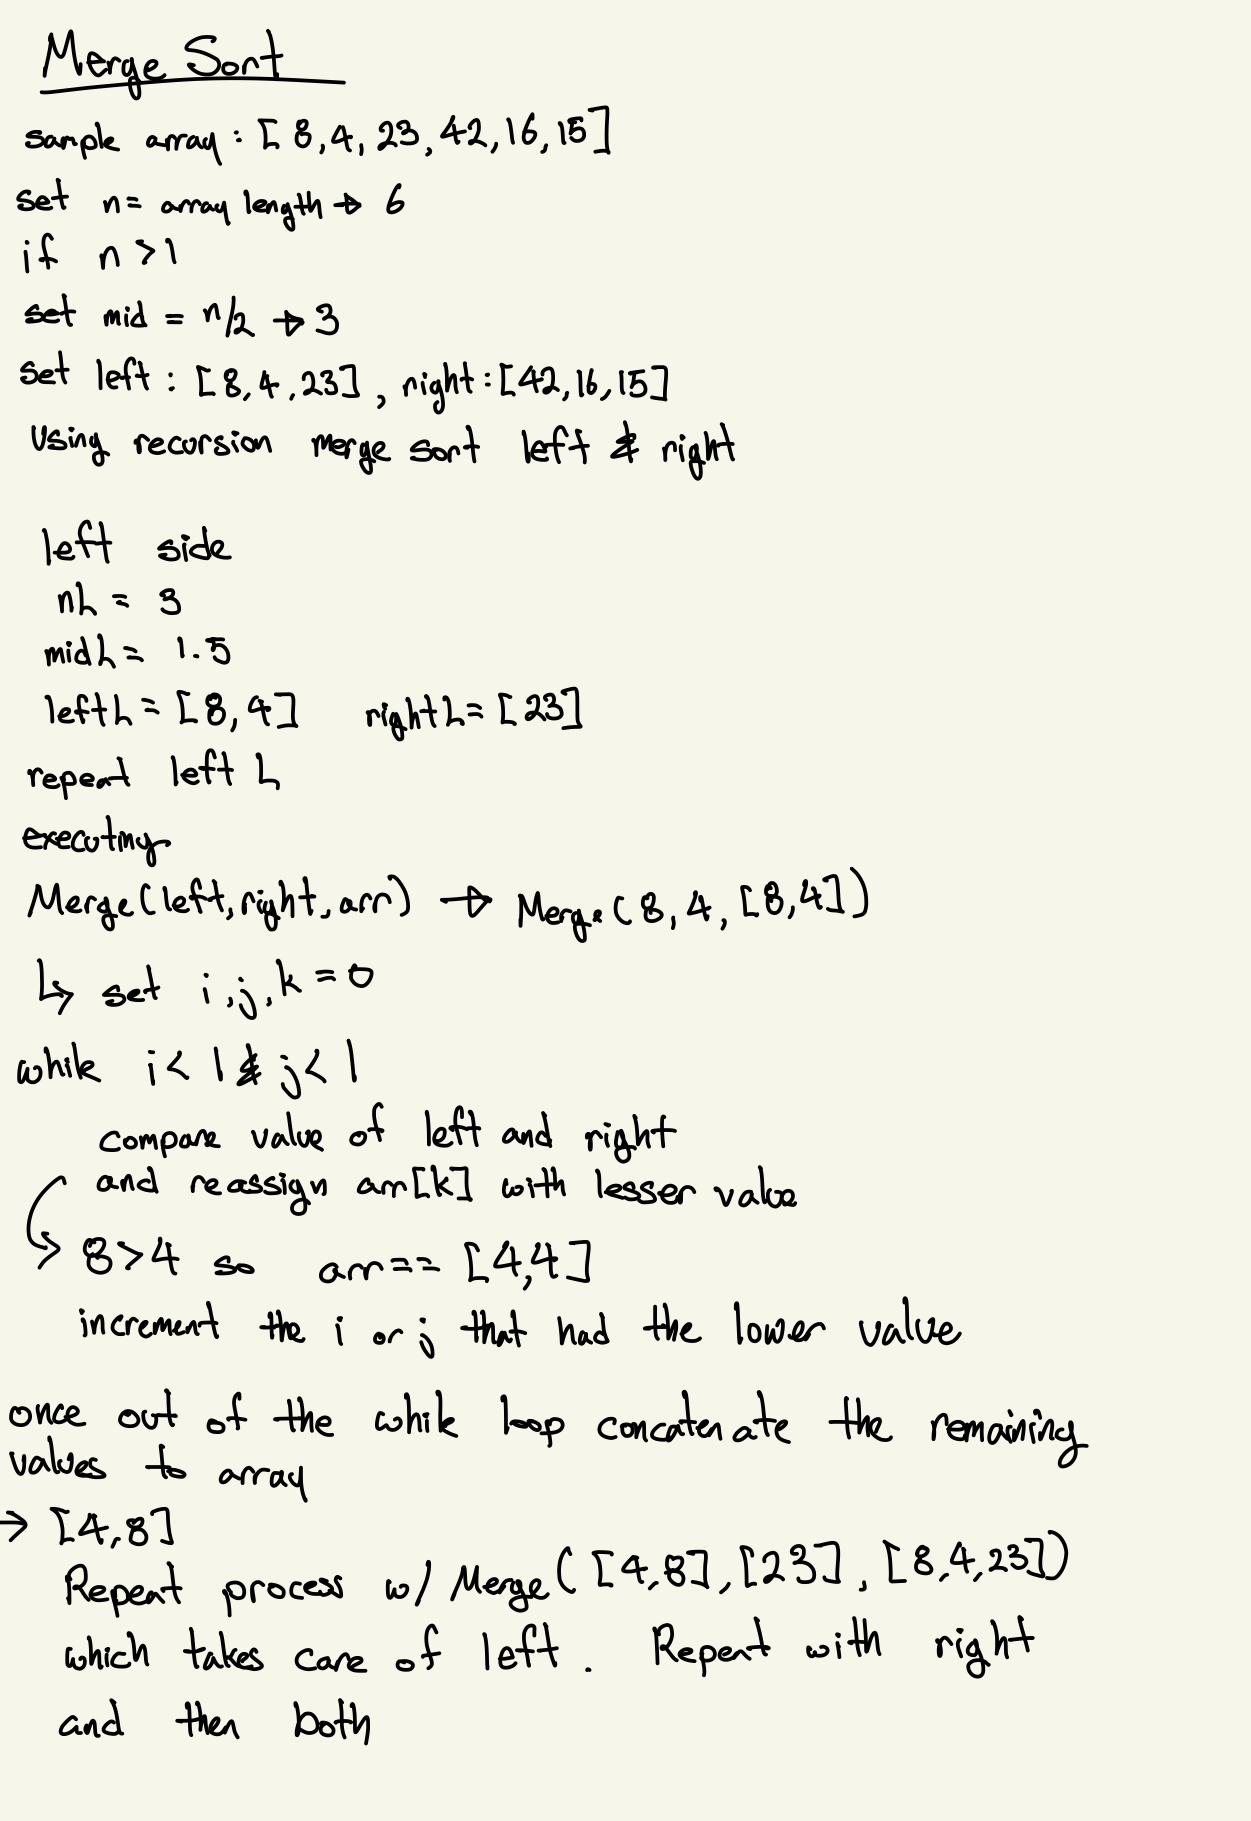 Merge Sort
sample array: [8,4,23,42,16,15]
set n= array length → 6
if n >1
set mid = n/2 → 3
set left: [8,4,23], right:[42,16,15]
Using recursion merge sort left & right
left side
nL = 3
midL= 1.5
leftL= [8,4] rightL= [23]
repeat left L
executing
Merge(left,right,arr) → Merge(8,4,[8,4])
↳ set i,j,k=0
while i< 1 & j< 1
compare value of left and right
and reassign arr[k] with lesser value
8>4 so arr== [4,4]
increment the i or j that had the lower value
once out of the while loop concatenate the remaining
values to array
→ [4,8]
Repeat process w/ Merge([4,8],[23],[8,4,23])
which takes care of left. Repeat with right
and then both